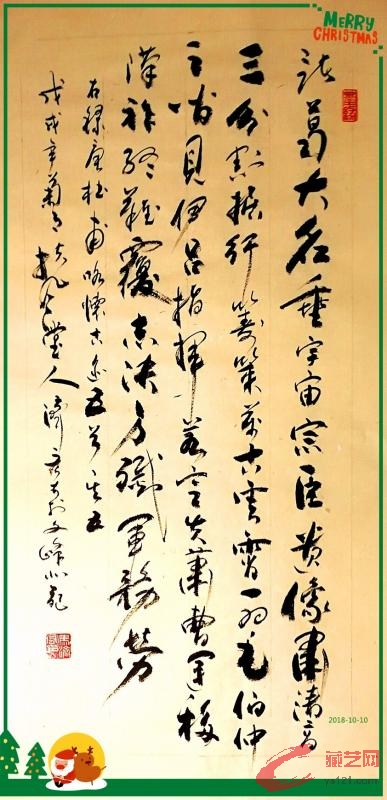 MERRY
CHRISTMAS
諸葛大名垂宇宙宗臣遺像肅清高
三分割據紆籌策萬古雲霄一羽毛伯仲
之間見伊呂指揮若定失蕭曹運移
漢祚終難覆志決身殲軍務勞
右録唐杜甫咏懷古迹五首其五
戊戌年菊月
2018-10-10
藏艺网